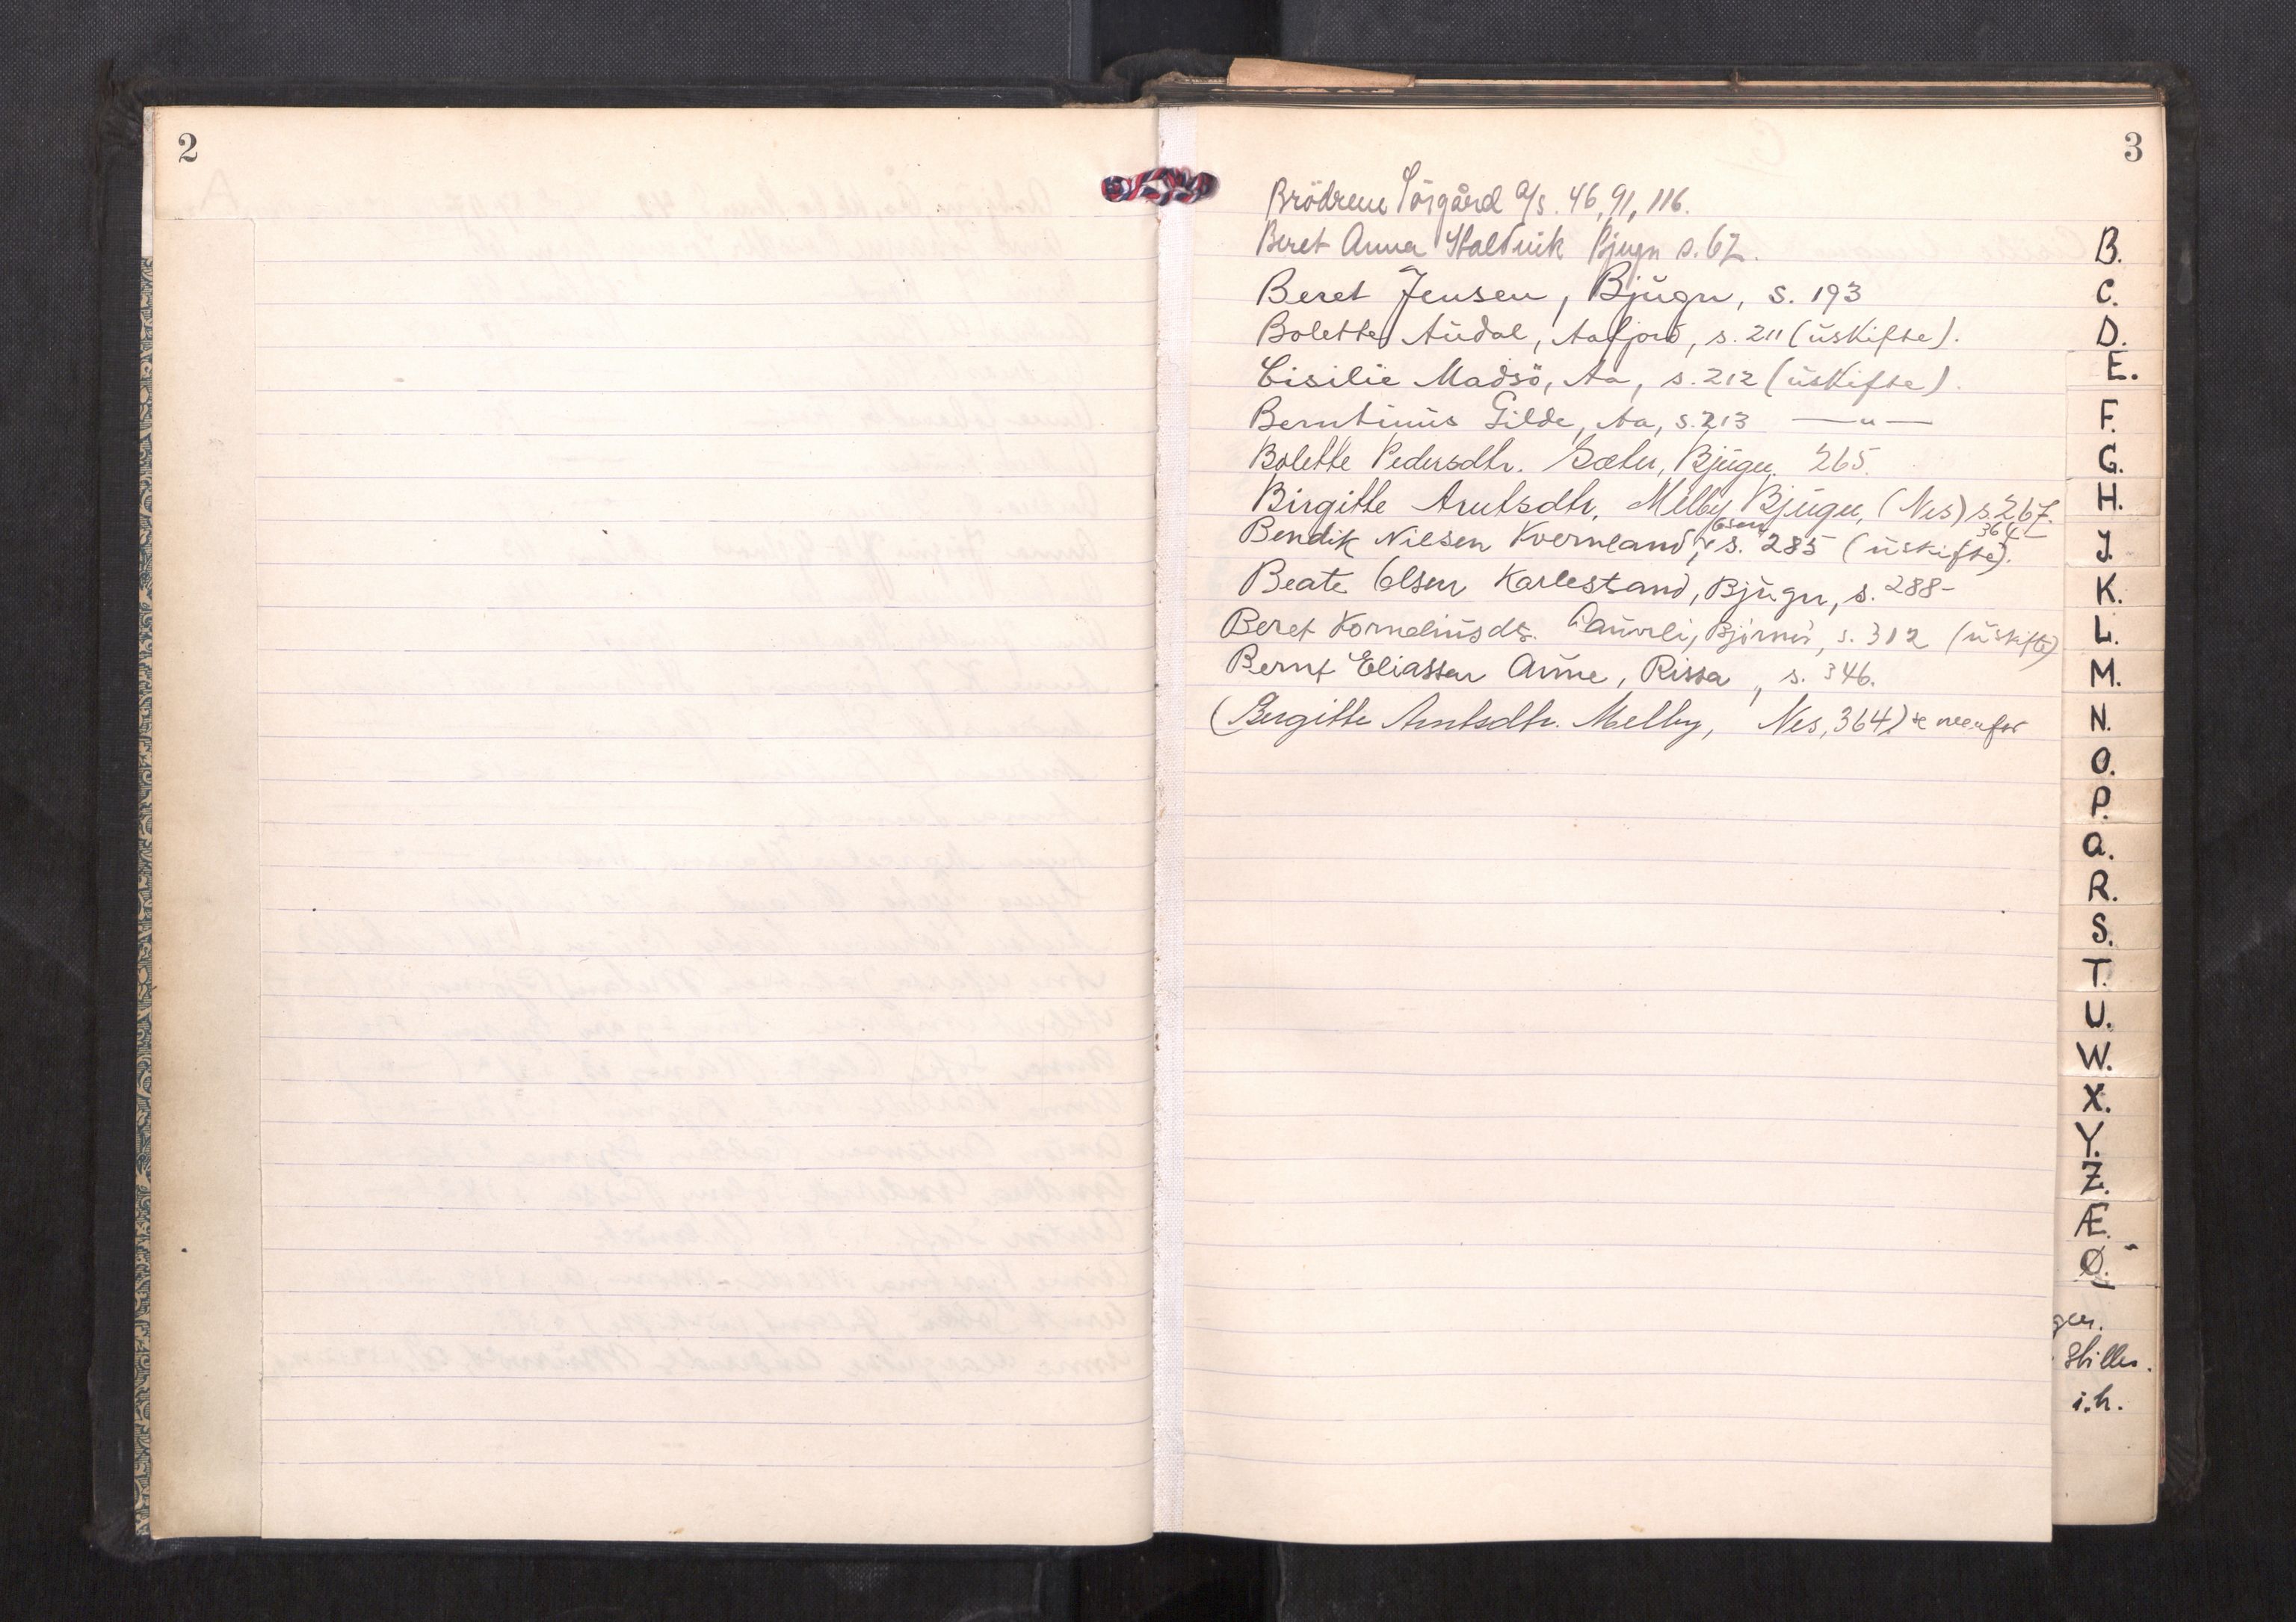 2
3
Brödrene Sörgård A/s. 46, 91, 116.
Beret Anna Staltvik Bjugn s. 67.
Beret Jensen, Bjugn, s. 193
Bolette Aŭdal, Aafjord, s. 211 (ŭskifte).
Cisilie Madsö, Aa, s. 212 (ŭskifte).
Berntinŭs Gilde, Aa, s. 213 —"—
Bolette Pedersdtr. Sæter, Bjŭgn. 265.
Birgitte Arntsdtr. Melby, Bjŭgn, (Nes) s. 267.
364
Bendik Nilsen Kvernland, s. 285 (ŭskifte).
Beate Olsen Karlestrand, Bjŭgn, s. 288-
Beret Kornelinŭsdt. Björnör, s. 312 (ŭskifte)
Bernt Eliassen Aŭne, Rissa, s. 346.
(Birgitte Arntsdtr. Melby, Nes, 364) se ovenfor
B.
C.
D.
E.
F.
G.
H.
J.
K.
L.
M.
N.
O.
P.
Q.
R.
S.
T.
U.
W.
X.
Y.
Z.
Æ.
Ø.
gen.
i.h.